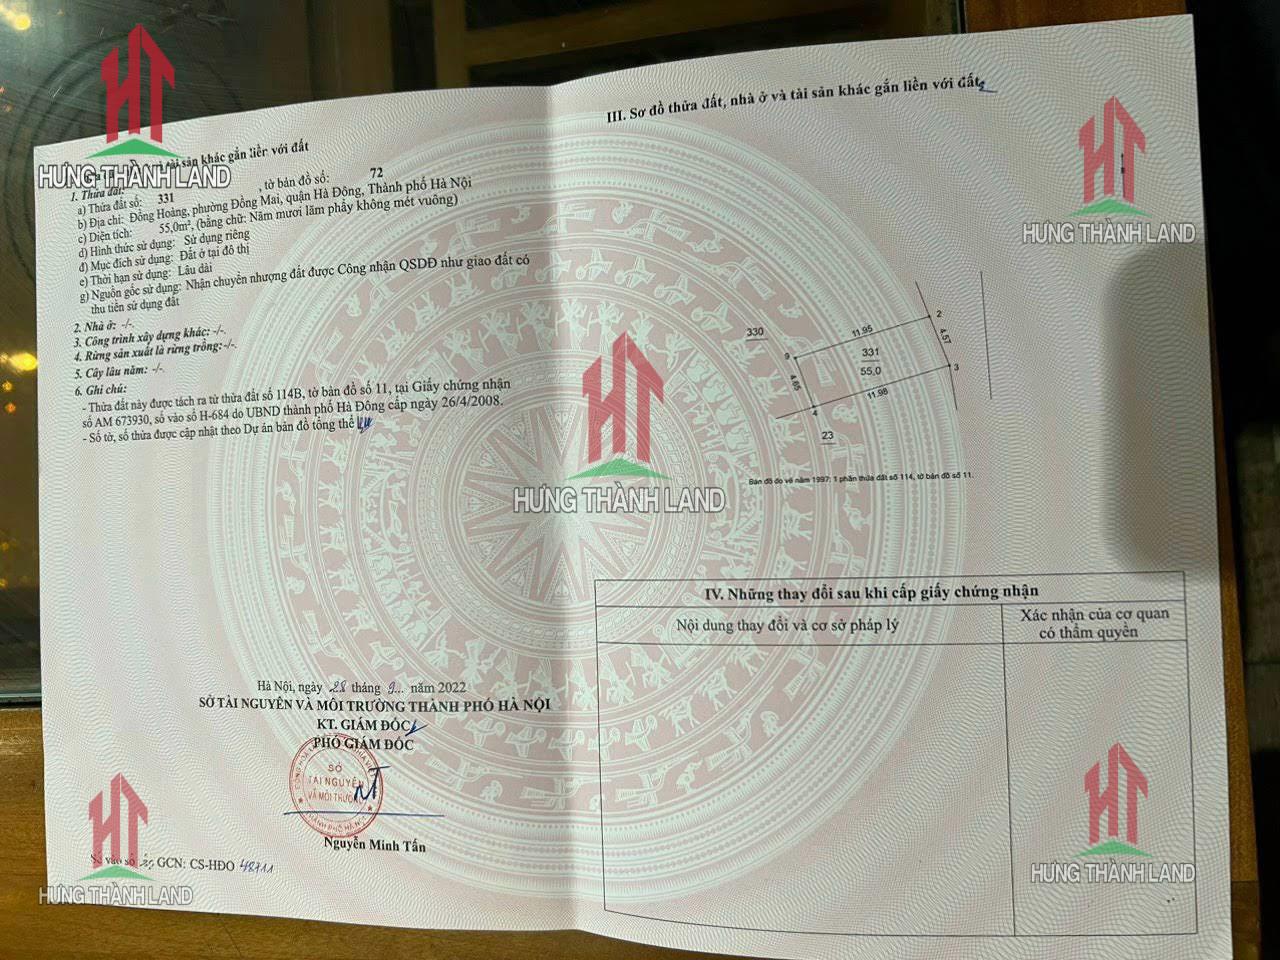 tài sản khác gắn liền với đất
1. Thửa đất:
a) Thửa đất số: 331 , tờ bản đồ số: 72
b) Địa chỉ: Đồng Hoàng, phường Đồng Mai, quận Hà Đông, Thành phố Hà Nội
c) Diện tích: 55,0m², (bằng chữ: Năm mươi lăm phẩy không mét vuông)
d) Hình thức sử dụng: Sử dụng riêng
đ) Mục đích sử dụng: Đất ở tại đô thị
e) Thời hạn sử dụng: Lâu dài
g) Nguồn gốc sử dụng: Nhận chuyển nhượng đất được Công nhận QSDĐ như giao đất có
thu tiền sử dụng đất
2. Nhà ở: -/-.
3. Công trình xây dựng khác: -/-.
4. Rừng sản xuất là rừng trồng:-/-.
5. Cây lâu năm: -/-.
6. Ghi chú:
- Thửa đất này được tách ra từ thửa đất số 114B, tờ bản đồ số 11, tại Giấy chứng nhận
số AM 673930, số vào sổ H-684 do UBND thành phố Hà Đông cấp ngày 26/4/2008.
- Số tờ, số thửa được cập nhật theo Dự án bản đồ tổng thể
Hà Nội, ngày 28 tháng 9... năm 2022
SỞ TÀI NGUYÊN VÀ MÔI TRƯỜNG THÀNH PHỐ HÀ NỘI
KT. GIÁM ĐỐC
PHÓ GIÁM ĐỐC
SỞ
TÀI NGUYÊN
VÀ MÔI TRƯỜNG
THÀNH PHỐ HÀ NỘI
Nguyễn Minh Tấn
Số vào sổ GCN: CS-HĐO 48711
III. Sơ đồ thửa đất, nhà ở và tài sản khác gắn liền với đất
330
11.95
2
4.57
9
331
55,0
3
4.65
11.98
4
23
Bản đồ đo vẽ năm 1997: 1 phần thửa đất số 114, tờ bản đồ số 11.
IV. Những thay đổi sau khi cấp giấy chứng nhận
Nội dung thay đổi và cơ sở pháp lý
Xác nhận của cơ quan
có thẩm quyền
HƯNG THÀNH LAND
HƯNG THÀNH LAND
HƯNG THÀNH LAND
HƯNG THÀNH LAND
HƯNG THÀNH LAND